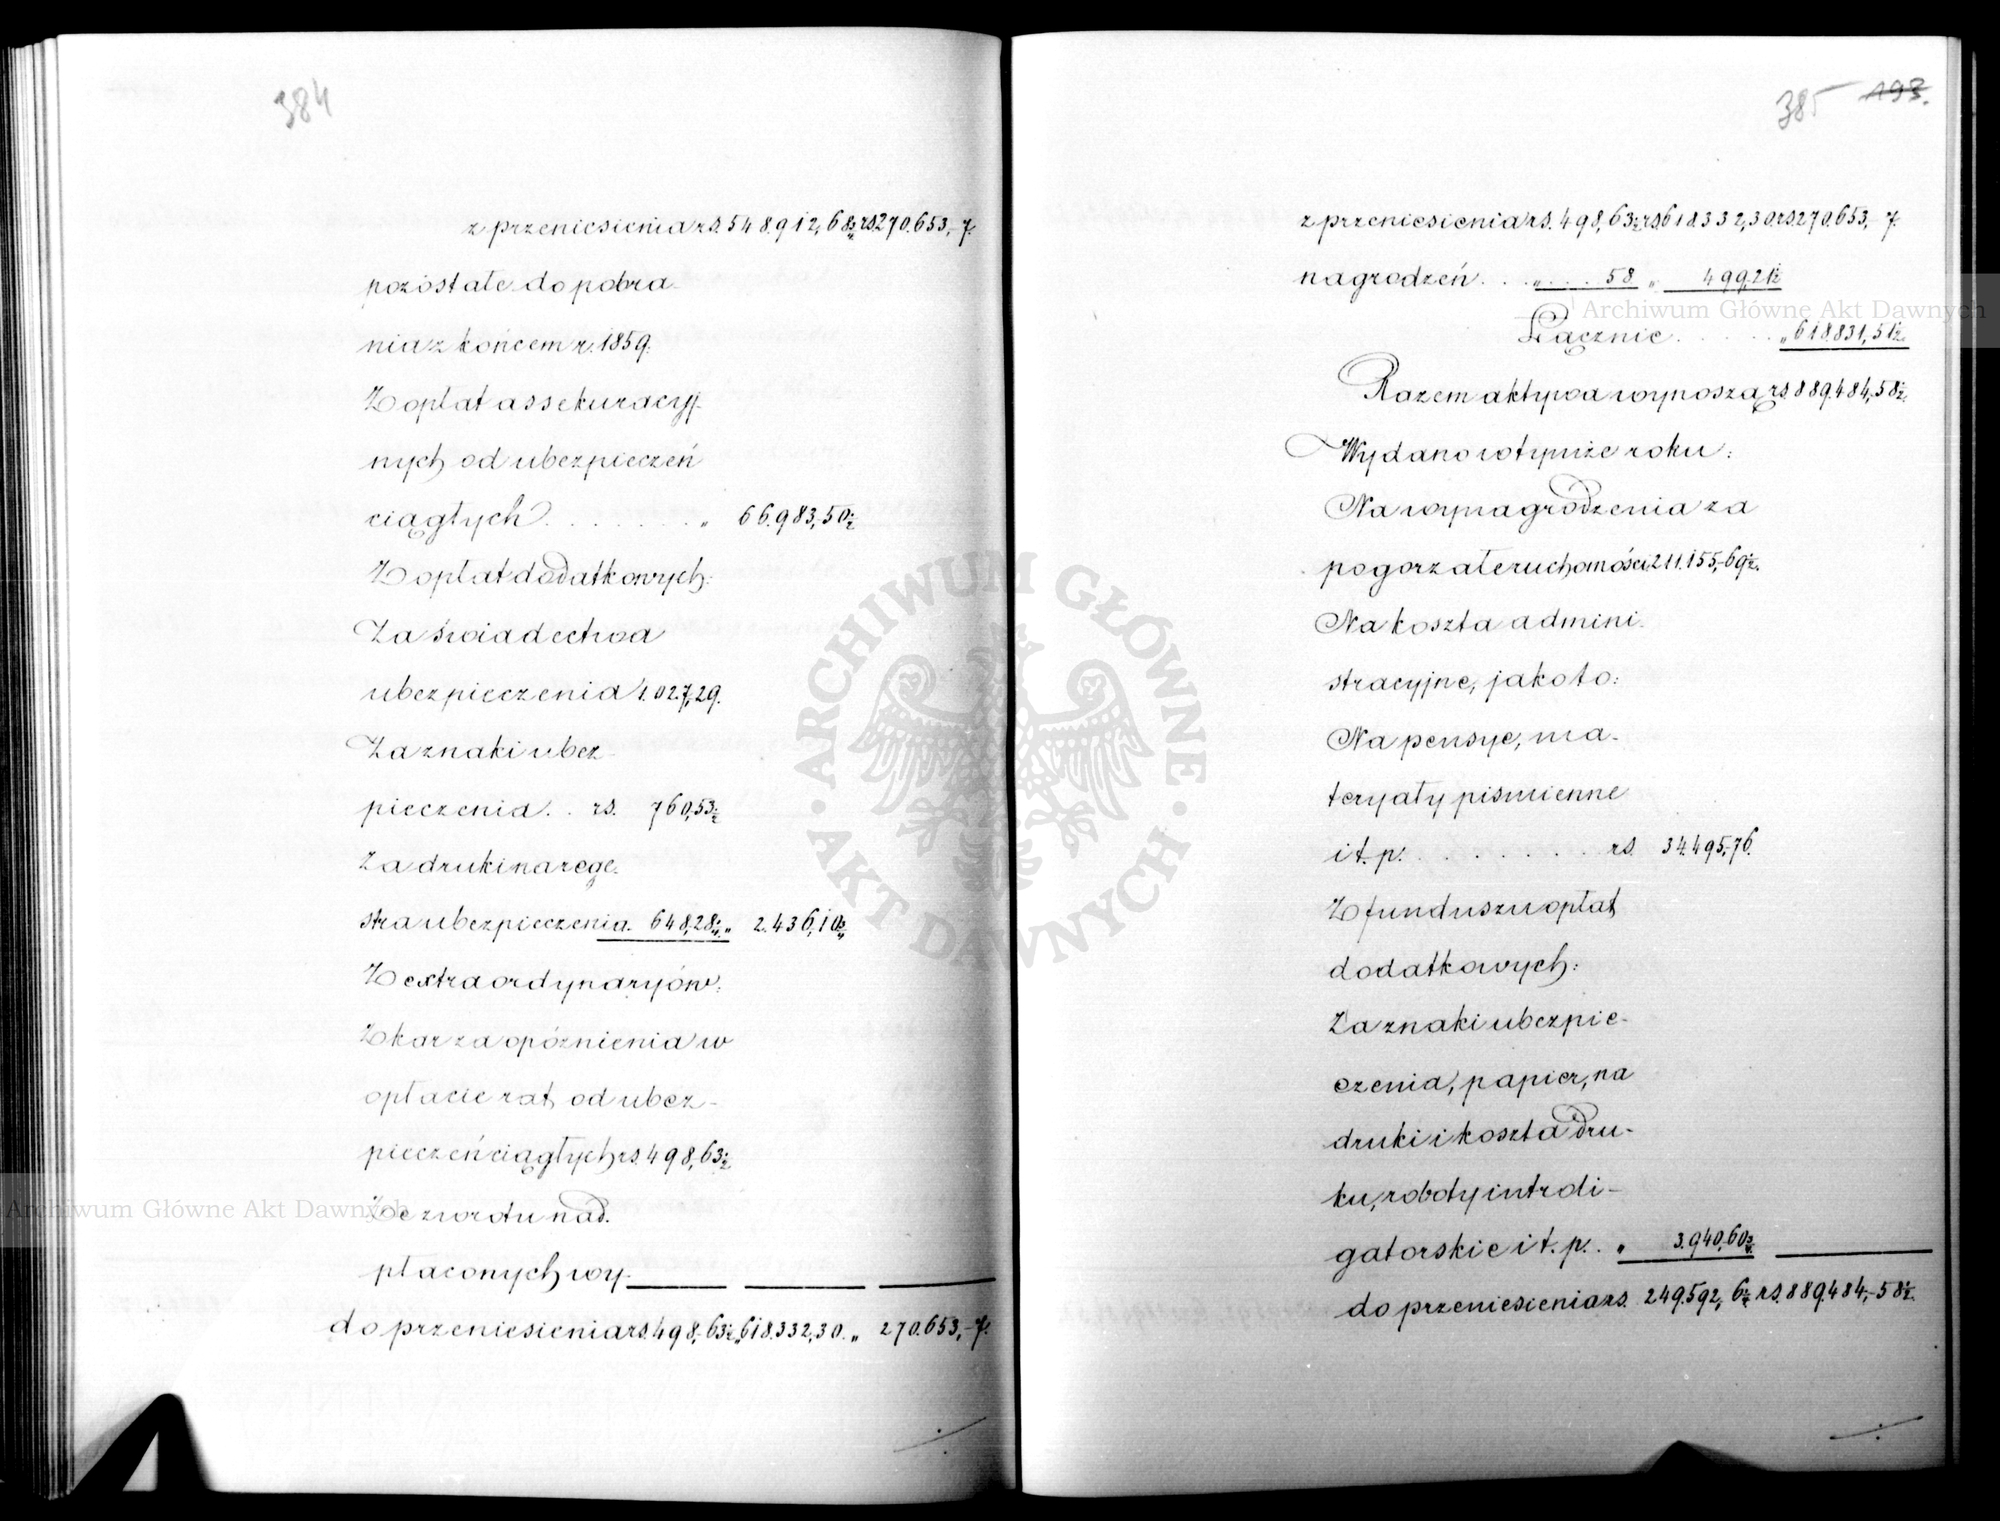 384
z przeniesienia rs. 548.912,68¾ rs. 270.653,-7.
pozostałe do pobra-
nia z końcem r. 1859.
Z opłat assekuracyj-
nych od ubezpieczeń
ciągłych . . . . . . . „ 66.983,50½
Z opłat dodatkowych:
Za świadectwa
ubezpieczenia 1.027,29.
Za znaki ubez-
pieczenia . . rs. 760,53½
Za druki na reje-
stra ubezpieczenia. 648,28¼ „ 2.436,10¾
Z extraordynaryów:
Z kar za opóźnienia w
opłacie rat od ubez-
pieczeń ciągłych rs. 498,63½
Ze zwrotu nad-
płaconych wy-
do przeniesienia rs. 498,-63½ „ 618.332,30. „ 270.653,-7.
385 193.
z przeniesienia rs. 498,63½ rs. 618.332,30. rs. 270.653,-7.
nagrodzeń . . . „ . . . 58 „ 499,21½
Łącznie . . . . . . „ 618.831,51½
Razem aktywa wynoszą rs. 889.484,-58½
Wydano w tymże roku:
Na wynagrodzenia za
pogorzałe ruchomości 211.155,-69½.
Na koszta admini-
stracyjne, jako to:
Na pensye, ma-
teryały piśmienne
i t. p. . . . . . . . . rs. 34.495,-76.
Z funduszu opłat
dodatkowych:
Za znaki ubezpie-
czenia, papier, na
druki i koszta dru-
ku, roboty introli-
gatorskie i t. p. . „ 3.940,60¾
do przeniesienia rs. 249.592, 6¼ rs. 889.484,-58½.
ARCHIWUM GŁÓWNE · AKT DAWNYCH ·
Archiwum Główne Akt Dawnych
Archiwum Główne Akt Dawnych